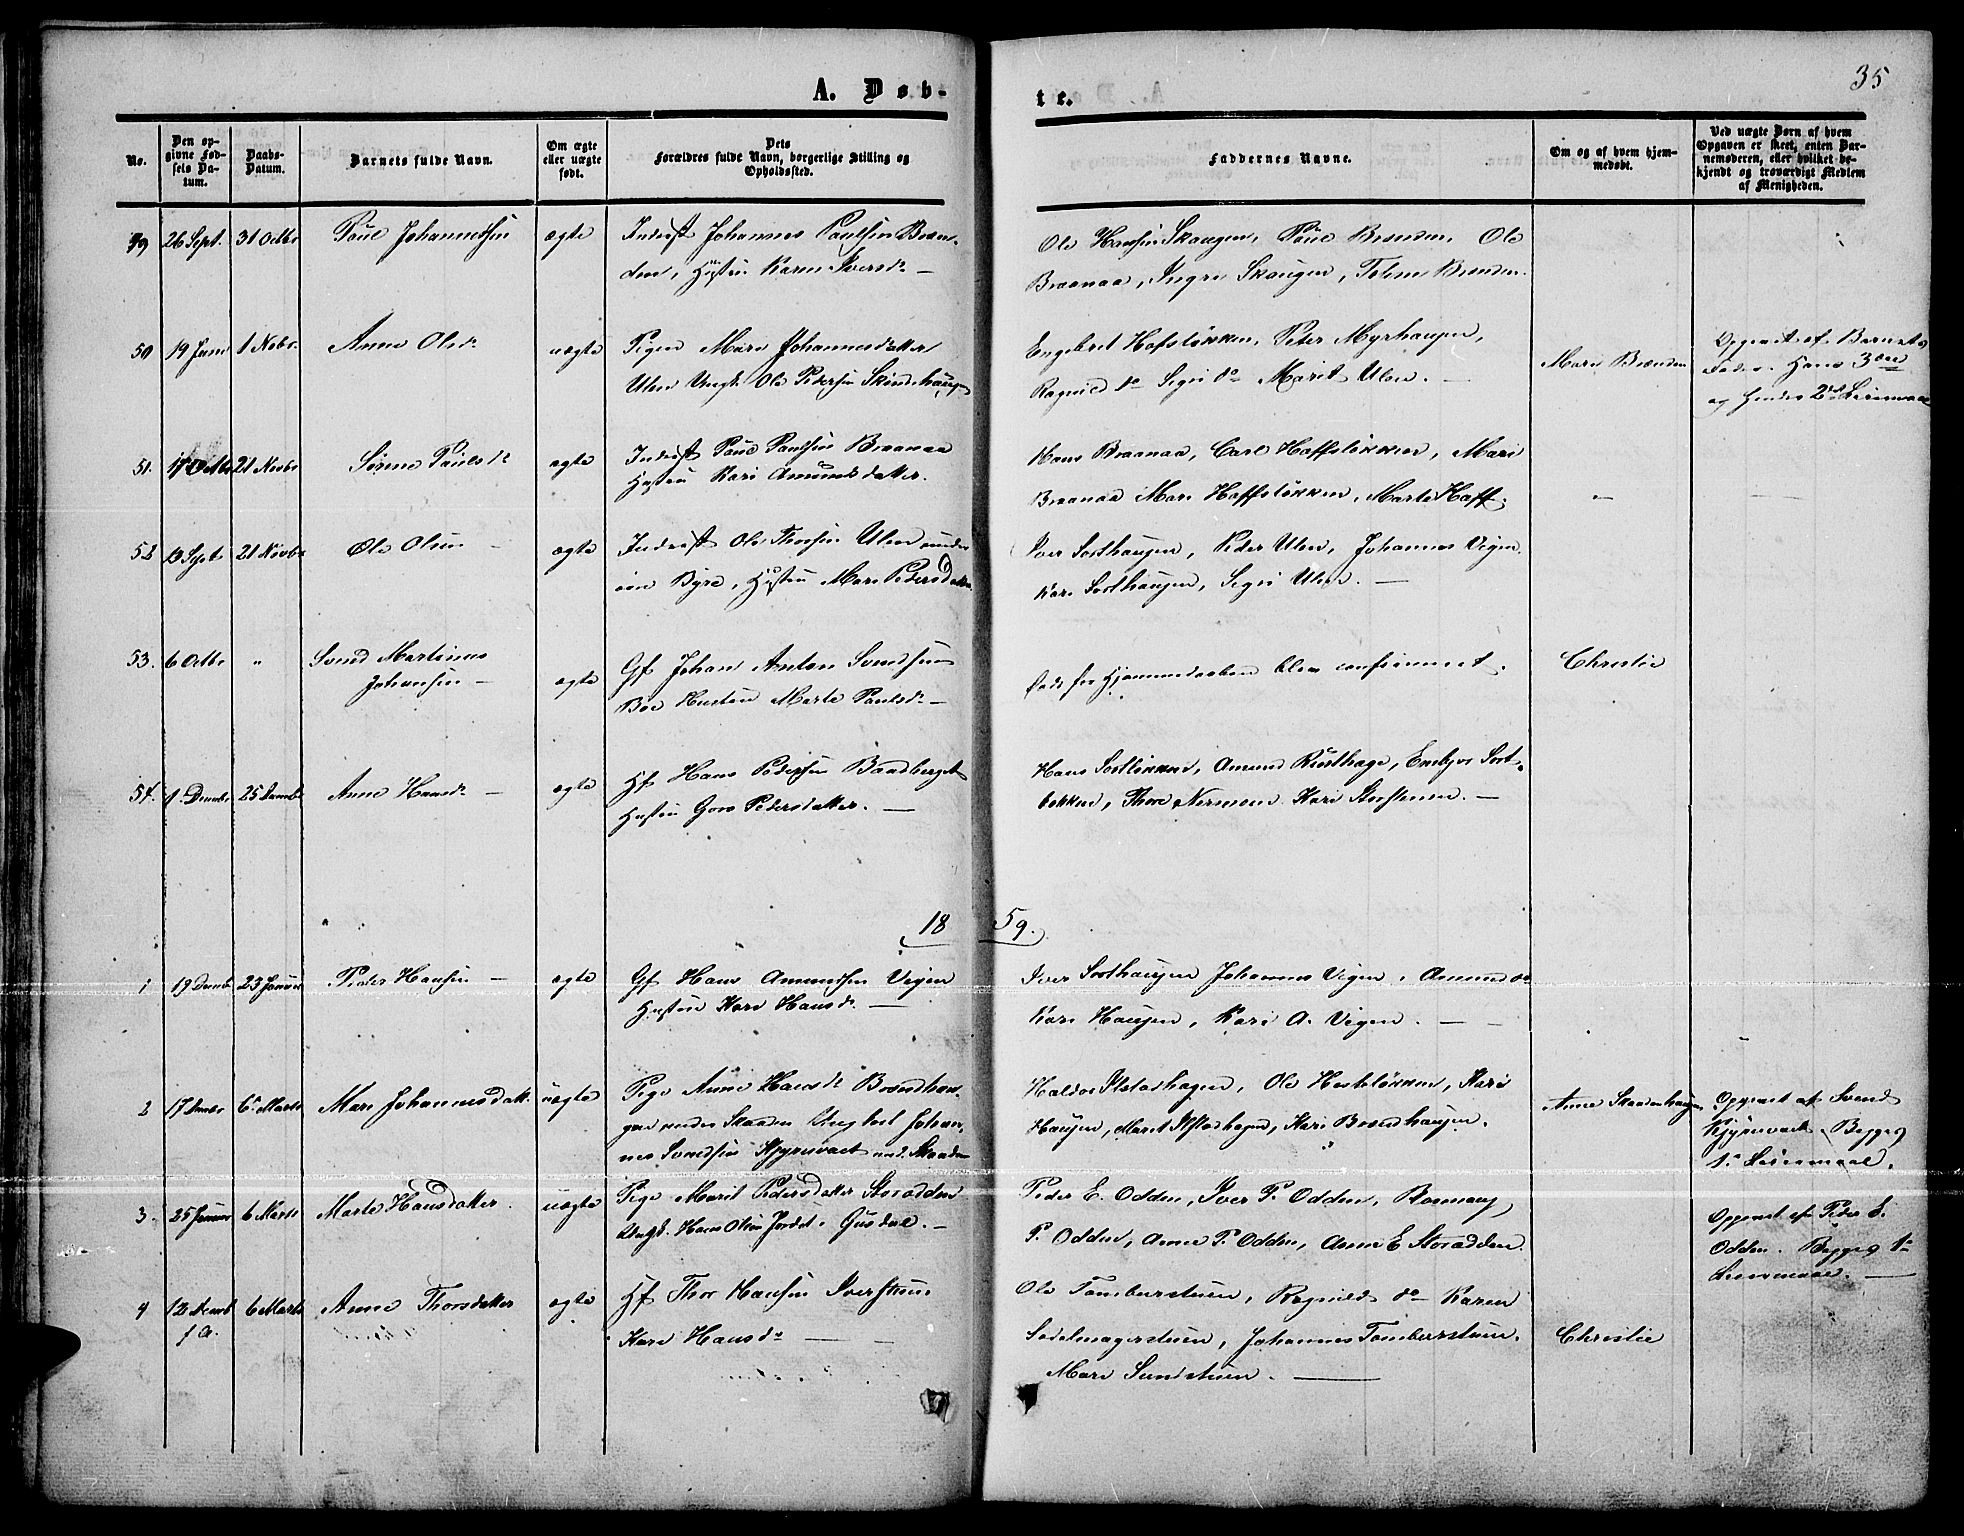 35
A. Døb-
te.
No.
Den op-
givne Fød-
sels Da-
tum.
Daabs-
Datum.
Barnets fulde Navn.
Om ægte
eller uægte
født.
Dets
Forældres fulde Navn, borgerlige Stilling og
Opholdssted.
Faddernes Navne.
Om og af hvem hjem-
medøbt.
Ved uægte Børn af hvem
Opgaven er skeet, enten Bar-
nemoderen, eller hvilket be-
kjendt og troværdigt Medlem
af Menigheden.
49 26 Sept. 31 Octbr Paul Johannessen ægte Inderst Johannes Paulsen Bræn-
den, Hustru Karen Iversdr —
Ole Hansen Skaugen, Paul Brænden, Ole
Braanaa, Ingri Skaugen, Brænden.
50 19 Juni 1 Nobr. Anne Olsdr uægte Pigen Mari Johannesdatter
Ulen Ungk. Ole Pedersen Skindhaugen
Engebret Hafsløkken, Peter Myrhaugen,
Ragnild do Sigri do Marit Ulen. —
Mari Brænden
Opgivet af Barnets
Fader. Hans 3die
og Hendes 2det Leiermaal
51. 17 Octbr 21 Novbr Sørine Paulsdr ægte Inderst Paul Paulsen Braanaa
Hustru Kari Amundsdatter.
Hans Braanaa, Carl Haffsløkken, Mari
Braanaa Mari Haffsløkken, Marte Haff.
52 Sept 21 Novbr Ole Olsen — ægte Inderst Ole Thorsen Ulen under
Byre, Hustru Mari Pedersdatter
Iver Sorthaugen, Peder Ulen, Johannes Vigen
Kari Sorthaugen, Sigri Ulen. —
53. 6 Octbr " Svend Martinus
Johansen — ægte Gf Johan Anton Svendsen
Boe Hustru Marte Paulsdr —
Døde før Hjemmedaaben blev confirmeret.
Christie
54. 1 Decmbr 25 Decmbr Anne Hansdr — ægte Hf Hans Pedersen Baadberget
Hustru Goro Pedersdatter. —
Hans Sortløkken, Amund Rusthage, Embjør Sort-
løkken, Thore Nermoen Kari Storstuen. —
1859.
1 19 Decmbr 23 Januar Peder Hansen — ægte Gf Hans Amundsen Vigen
Hustru Kari Hansdr —
Iver Sorthaugen Johannes Vigen, Amund do
Kari Haugen, Kari A. Vigen. —
2 17 Decbr 6 Marts Mari Johannesdatt. uægte Pige Anne Hansdr Brændhau-
gen under Skaaden Ungkarl Johan-
nes Svendsen Kjyruvaet und. Skaaden
Haldor Ilstadhagen, Ole Hesteløkken, Kari
Haugen, Marit Ilstadhagen, Kari Brændhaugen.
Anne Skaadenhaugen
Opgivet af Svend
Kjyruvaet. Begges
1ste Leiermaal.
3. 25 Januar 6 Marts Marte Hansdatter. uægte Pige Marit Pedersdatter Storodden
Ungk. Hans Olsen Jordet i Gusdal. —
Peder E. Odden, Iver P. Odden, Rønnaug
P. Odden, Anne P. Odden, Anne E Storodden.
Opgivet af Peder E.
Odden. Begges 1ste
Leiermaal. —
4 12 Decmb
f. A. 6 Marts Anne Thorsdatter ægte Hf Thor Hansen Iverstuen
Kari Hansdr —
Ole Tomberstuen, Ragnild do Karen
Sadelmagerstuen, Johannes Tomberstuen,
Mari Sundstuen. —
Christie